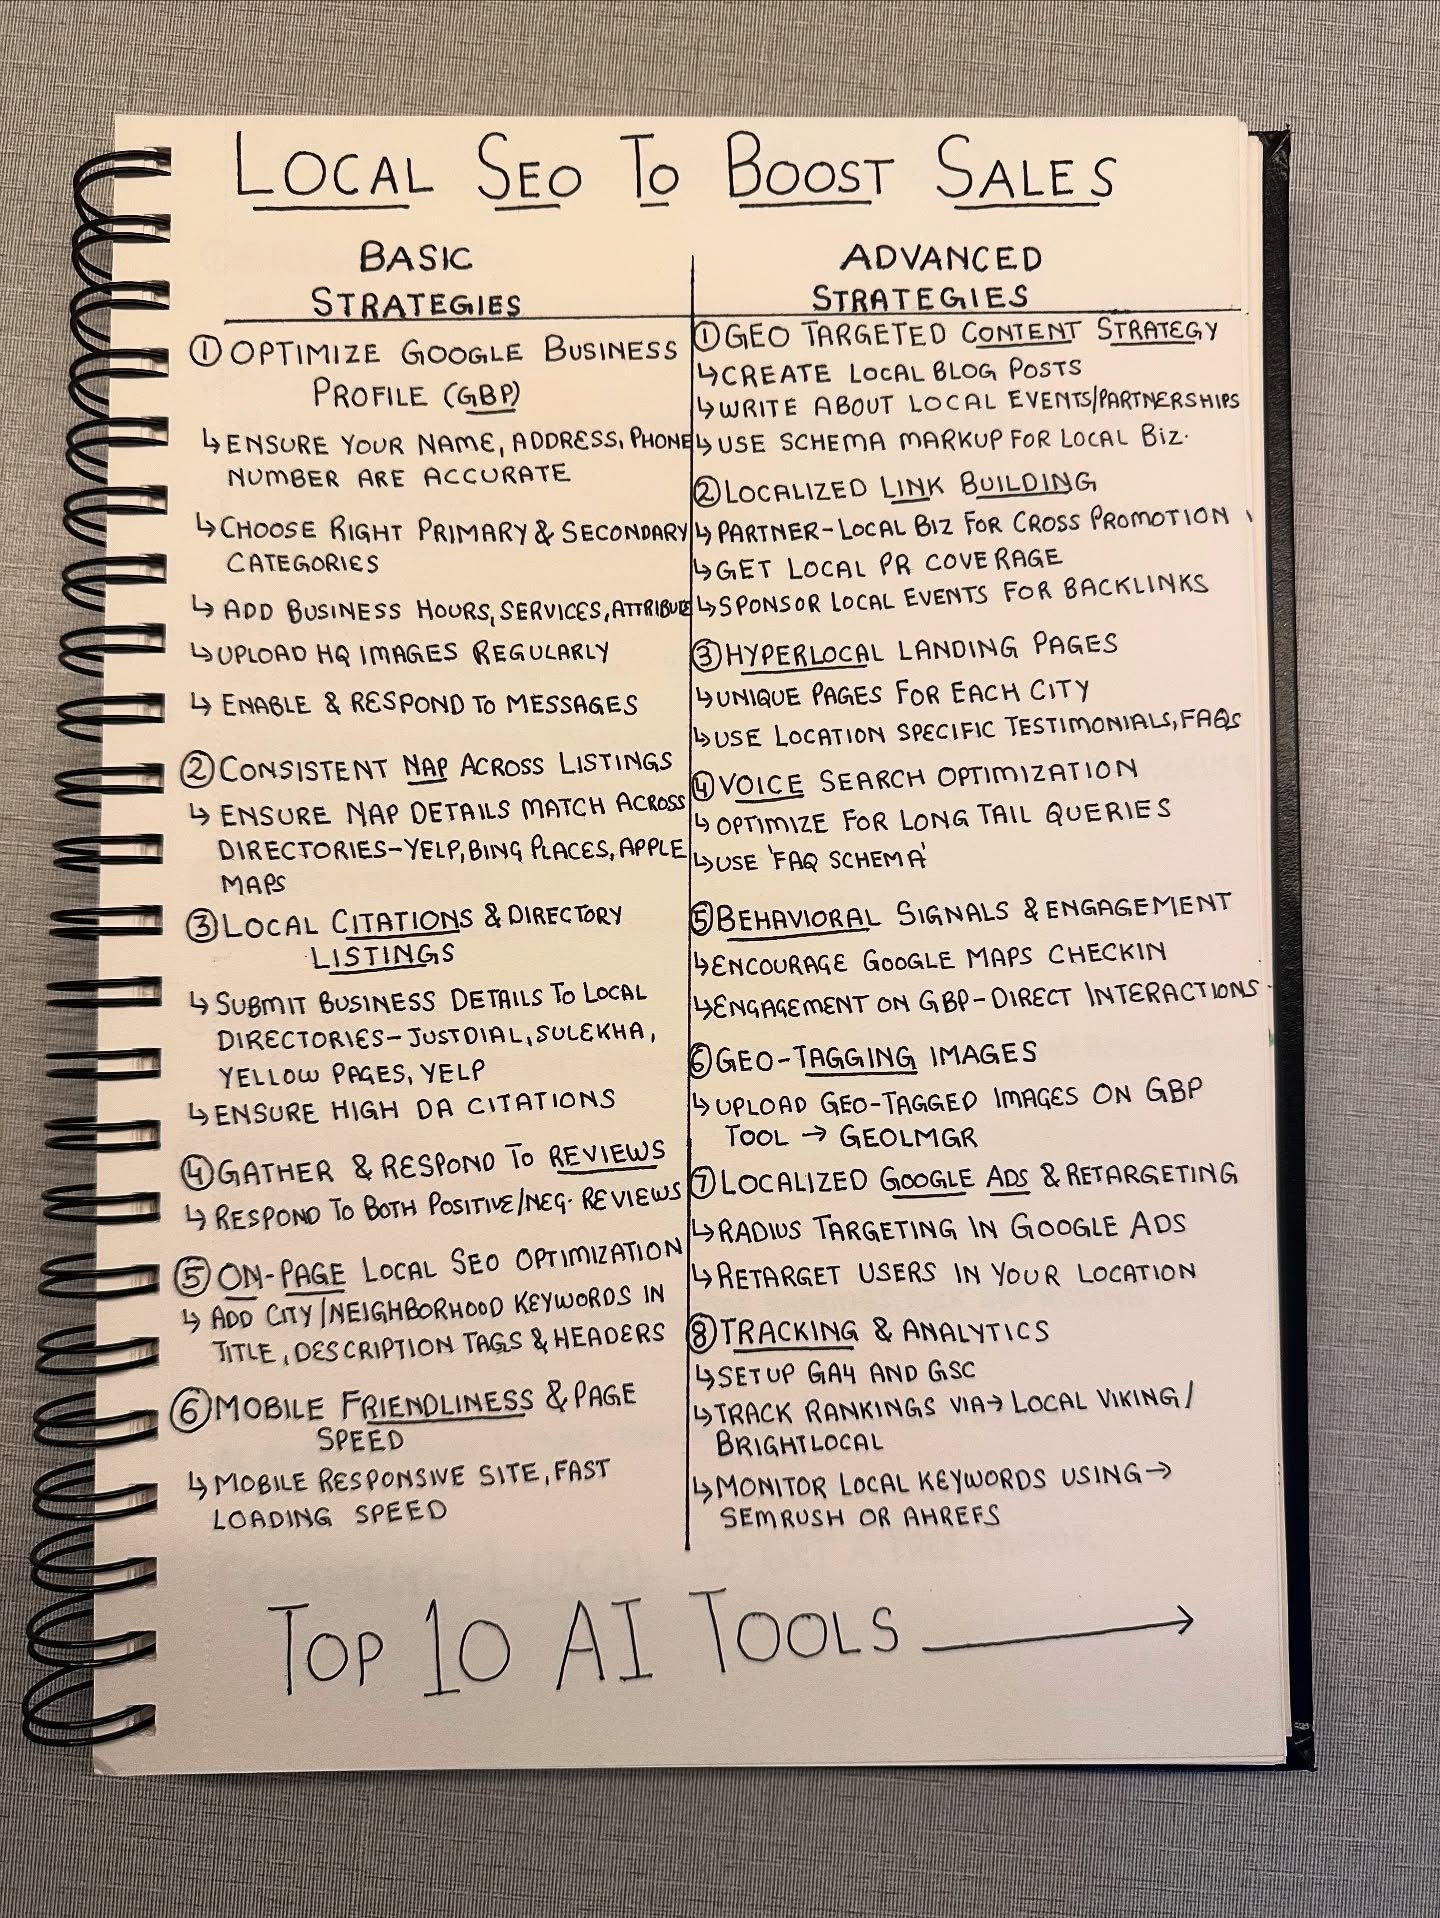 LOCAL SEO TO BOOST SALES
BASIC
STRATEGIES
① OPTIMIZE GOOGLE BUSINESS
PROFILE (GBP)
↳ ENSURE YOUR NAME, ADDRESS, PHONE
NUMBER ARE ACCURATE
↳ CHOOSE RIGHT PRIMARY & SECONDARY
CATEGORIES
↳ ADD BUSINESS HOURS, SERVICES, ATTRIBUTE
↳ UPLOAD HQ IMAGES REGULARLY
↳ ENABLE & RESPOND TO MESSAGES
② CONSISTENT NAP ACROSS LISTINGS
↳ ENSURE NAP DETAILS MATCH ACROSS
DIRECTORIES-YELP, BING PLACES, APPLE
MAPS
③ LOCAL CITATIONS & DIRECTORY
LISTINGS
↳ SUBMIT BUSINESS DETAILS TO LOCAL
DIRECTORIES- JUSTDIAL, SULEKHA,
YELLOW PAGES, YELP
↳ ENSURE HIGH DA CITATIONS
④ GATHER & RESPOND TO REVIEWS
↳ RESPOND TO BOTH POSITIVE/NEG. REVIEWS
⑤ ON-PAGE LOCAL SEO OPTIMIZATION
↳ ADD CITY/NEIGHBORHOOD KEYWORDS IN
TITLE, DESCRIPTION TAGS & HEADERS
⑥ MOBILE FRIENDLINESS & PAGE
SPEED
↳ MOBILE RESPONSIVE SITE, FAST
LOADING SPEED
ADVANCED
STRATEGIES
① GEO TARGETED CONTENT STRATEGY
↳ CREATE LOCAL BLOG POSTS
↳ WRITE ABOUT LOCAL EVENTS/PARTNERSHIPS
↳ USE SCHEMA MARKUP FOR LOCAL BIZ.
② LOCALIZED LINK BUILDING
↳ PARTNER-LOCAL BIZ FOR CROSS PROMOTION
↳ GET LOCAL PR COVERAGE
↳ SPONSOR LOCAL EVENTS FOR BACKLINKS
③ HYPERLOCAL LANDING PAGES
↳ UNIQUE PAGES FOR EACH CITY
↳ USE LOCATION SPECIFIC TESTIMONIALS, FAQs
④ VOICE SEARCH OPTIMIZATION
↳ OPTIMIZE FOR LONG TAIL QUERIES
↳ USE 'FAQ SCHEMA'
⑤ BEHAVIORAL SIGNALS & ENGAGEMENT
↳ ENCOURAGE GOOGLE MAPS CHECKIN
↳ ENGAGEMENT ON GBP-DIRECT INTERACTIONS
⑥ GEO-TAGGING IMAGES
↳ UPLOAD GEO-TAGGED IMAGES ON GBP
TOOL → GEOLMGR
⑦ LOCALIZED GOOGLE ADS & RETARGETING
↳ RADIUS TARGETING IN GOOGLE ADS
↳ RETARGET USERS IN YOUR LOCATION
⑧ TRACKING & ANALYTICS
↳ SETUP GA4 AND GSC
↳ TRACK RANKINGS VIA→ LOCAL VIKING/
BRIGHTLOCAL
↳ MONITOR LOCAL KEYWORDS USING→
SEMRUSH OR AHREFS
TOP 10 AI TOOLS →